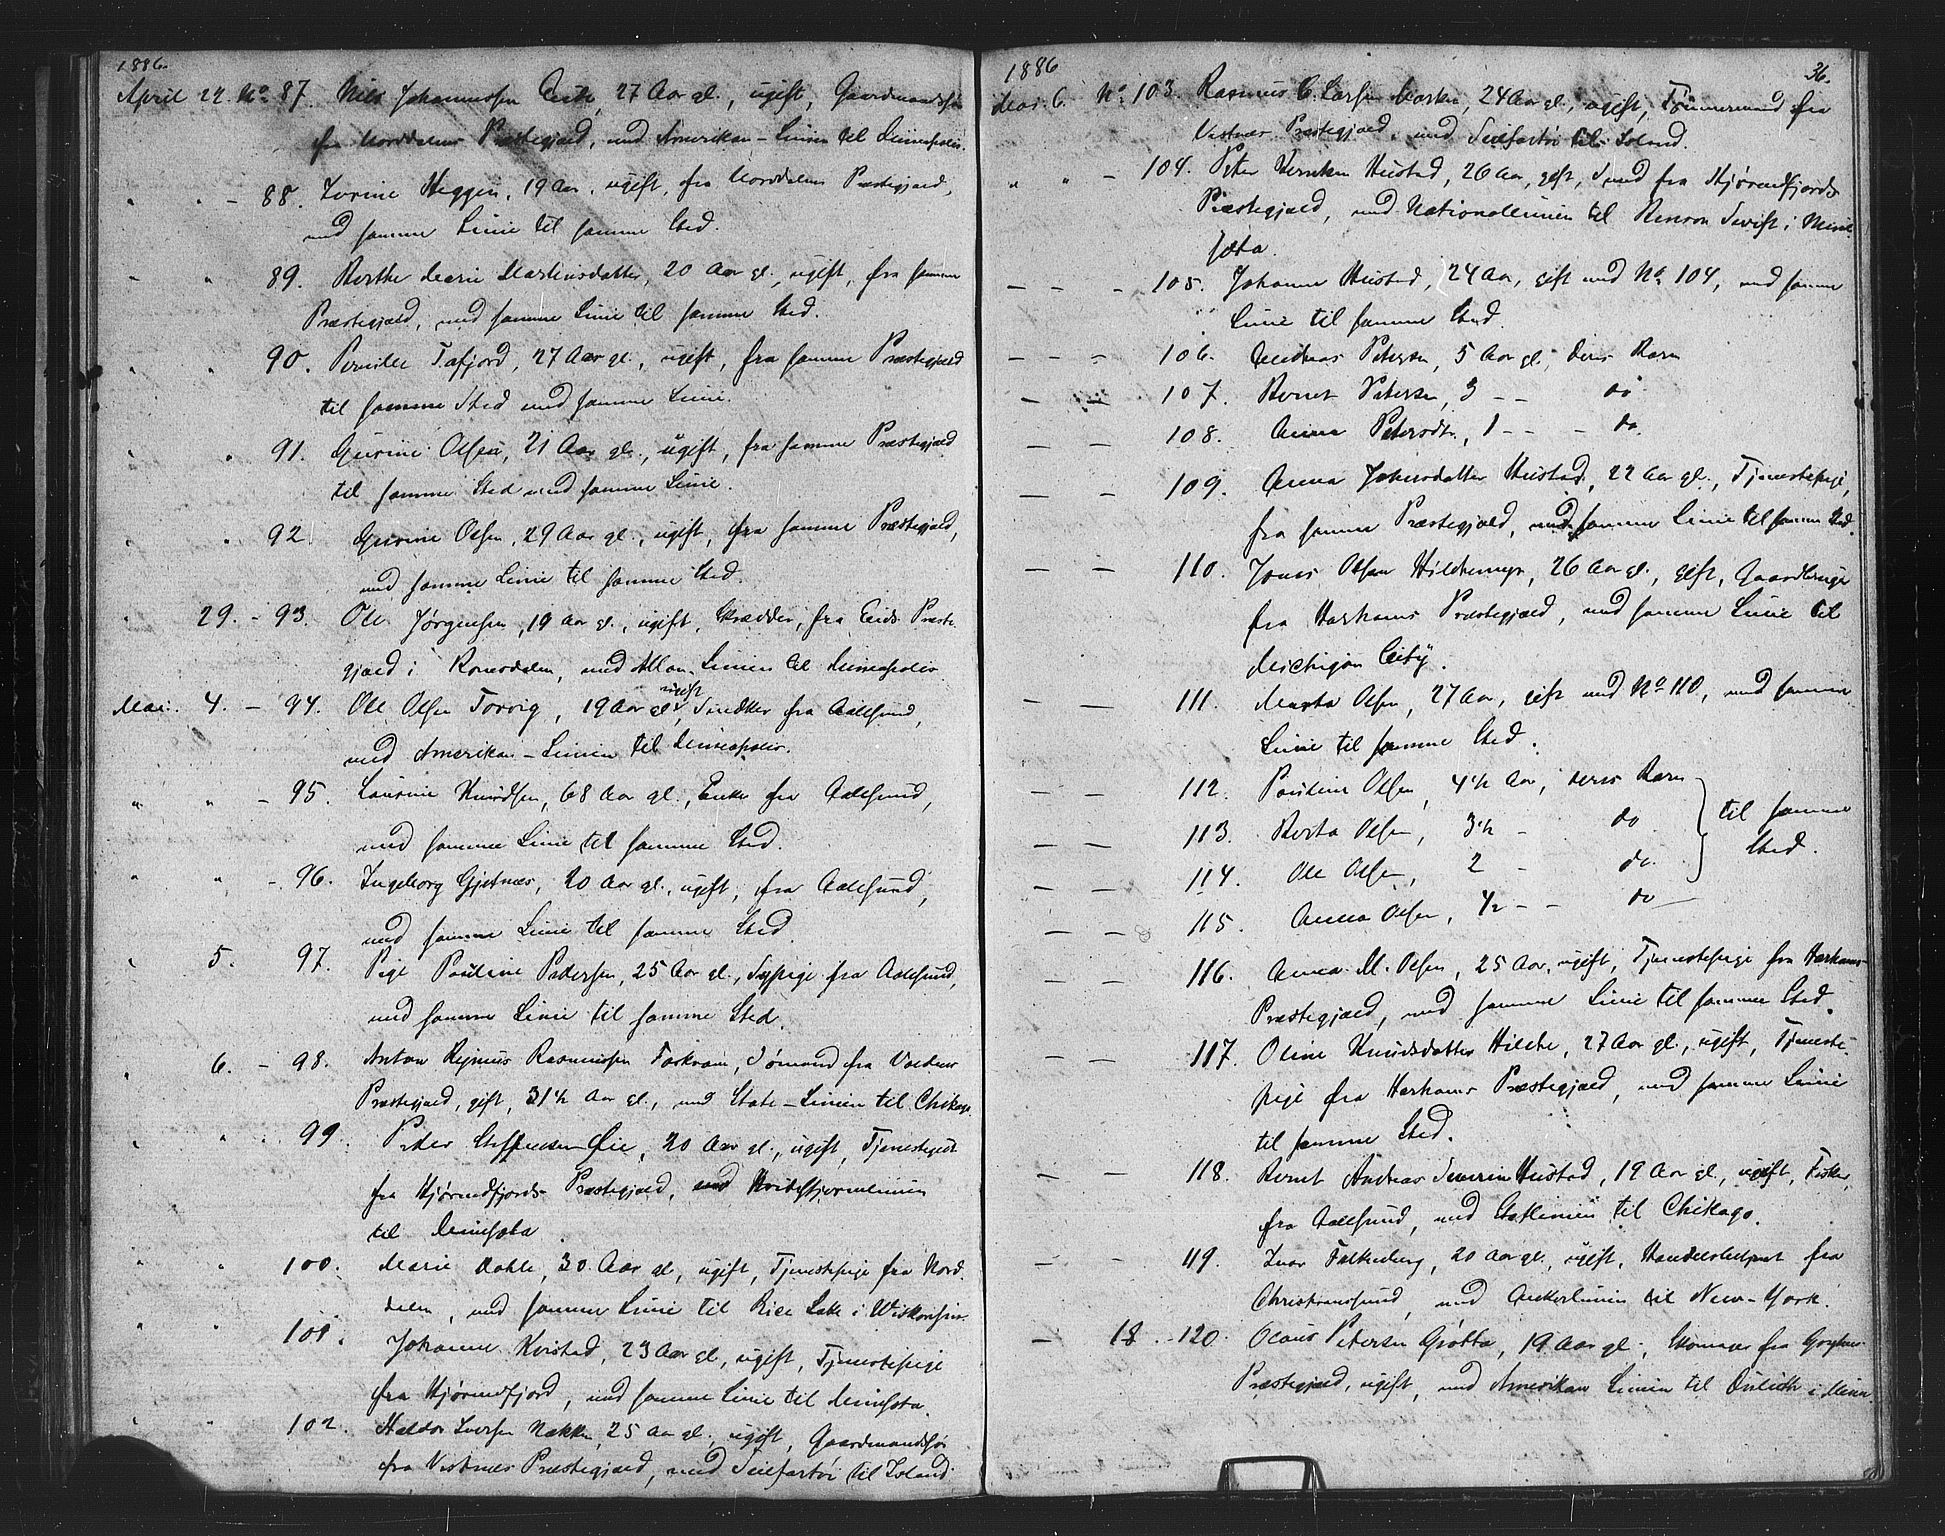 1886.
April 22. No 87. Nils Johannessen 27 Aar gl., ugift, Gaardmandssøn
fra Norddalens Præstegjæld, med Amerika-Linien til Minneapolis.
" " - 88. Heggen, 19 Aar, ugift, fra Norddalens Præstegjæld,
med samme Linie til samme Sted.
- " 89. Berthe Marie Martinsdatter, 20 Aar gl., ugift, fra samme
Præstegjæld, med samme Linie til samme Sted.
" " 90. Pernille Tafjord, 27 Aar gl., ugift, fra samme Præstegjæld
til samme Sted med samme Linie.
" " 91. Gurine Olsen, 21 Aar gl., ugift, fra samme Præstegjæld
til samme Sted med samme Linie.
" " 92. Gurine Olsen, 29 Aar gl., ugift, fra samme Præstegjæld,
med samme Linie til samme Sted.
" 29. - 93. Ole Jørgensen, 19 Aar gl., ugift, Skrædder, fra Eids Præste-
gjæld i Romsdalen, med Allan-Linien til Minneapolis
Mai. 4. - 94. Ole Olsen Torvig, 19 Aar gl., ugift, Snedker fra Aalesund,
med Amerika-Linien til Minneapolis.
" " - 95. Laurine Knudsen, 68 Aar gl., Enke fra Aalesund,
med samme Linie til samme Sted.
" " - 96. Ingeborg Gjetnæs, 20 Aar gl., ugift, fra Aalesund,
med samme Linie til samme Sted.
" 5. 97. Pige Pauline Pedersen, 25 Aar gl., Sypige fra Aalesund,
med samme Linie til samme Sted.
" 6. - 98. Anton Rasmussen Sømand fra Voldens
Præstegjæld, gift, 31½ Aar gl., med State-Linien til Chikago.
" " 99. Peder Steffensen Øie, 20 Aar gl., ugift, Tjenestegut
fra Hjørendfjords Præstegjæld, med Hvidestjernelinien
til Minnesota
" " 100. Marie Dahle, 30 Aar gl., ugift, Tjenestepige fra Nord-
dalen, med samme Linie til Rice Lake i Wiskonsin.
" " 101. Johanne Kvistad, 23 Aar gl., ugift, Tjenestepige
fra Hjørendfjord, med samme Linie til Minnesota.
" " 102. Haldor Iversen Nakken, 25 Aar gl., ugift, Gaardmandssøn
fra Vestnæs Præstegjæld, med Seilfartøi til Island.
1886 36.
Mai. 6. No 103. Rasmus C. Larsen 24 Aar gl., ugift, Tømmermand fra
Vestnæs Præstegjæld, med Seilfartøi til Island.
" " - 104. Peter Hustad, 26 Aar, gift, Smed fra Hjørendfjords
Præstegjæld, med Nationallinien til Benson Swift i Minne-
sota.
- - - 105. Johanne Hustad, 24 Aar, gift med No 104, med samme
Linie til samme Sted.
- - - 106. Andreas Petersen, 5 Aar gl., deres Barn
- - 107. Bernt Petersen, 3 - - do
- - 108. Anna Petersdt., 1 - - - do.
- - 109. Anna Johnsdatter Hustad, 22 Aar gl., Tjenestepige,
fra samme Præstegjæld, med samme Linie til samme Sted.
- - 110. Jonas Olsen Hildremyr, 26 Aar gl., gift, Gaardbruger
fra Harhams Præstegjæld, med samme Linie til
Michigan City.
- - 111. Marta Olsen, 27 Aar, gift med No 110, med samme
Linie til samme Sted.
- - 112. Pauline Olsen, 4½ Aar, deres Barn
- - 113. Berta Olsen, 3½ - do } til samme
- - 114. Ole Olsen, 2 - do. Sted.
- - 115. Anna Olsen, ½ - - do
- - 116. Anna M. Olsen, 25 Aar, ugift, Tjenestepige fra Harhams
Præstegjæld, med samme Linie til samme Sted.
- - 117. Oline Knudsdatter Hildre, 27 Aar gl., ugift, Tjeneste-
pige fra Harhams Præstegjæld, med samme Linie
til samme Sted.
- - 118. Bernt Andreas Severin Hustad, 19 Aar gl., ugift, Fisker,
fra Aalesund, med Statlinien til Chikago.
- - 119. Ivar Falkenberg, 20 Aar gl., ugift, Handelsbetjent fra
Christianssund, med Ankerlinien til New-York.
- 18. - 120. Olaus Petersen Grøtta, 19 Aar gl., Skomager fra Grytens
Præstegjæld, ugift, med Amerika Linien til Duluth i Minn